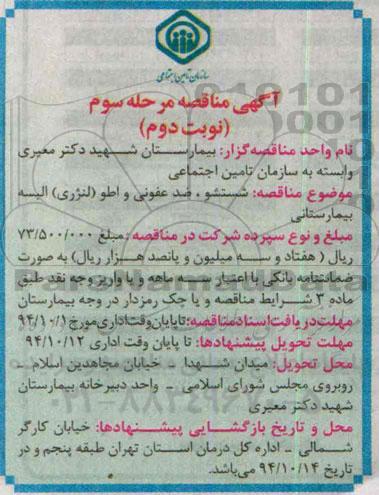 سازمان تامین اجتماعی
آگهی مناقصه مرحله سوم
(نوبت دوم)
نام واحد مناقصه‌گزار: بیمارستان شهید دکتر معیری
وابسته به سازمان تامین اجتماعی
موضوع مناقصه: شستشو ، ضد عفونی و اطو (لنژری) البسه
بیمارستانی
مبلغ و نوع سپرده شرکت در مناقصه: مبلغ ۷۳/۵۰۰/۰۰۰
ریال ( هفتاد و سه میلیون و پانصد هزار ریال) به صورت
ضمانتنامه بانکی با اعتبار سه ماهه و یا واریز وجه نقد طبق
ماده ۳ شرایط مناقصه و یا چک رمزدار در وجه بیمارستان
مهلت دریافت اسناد مناقصه: تا پایان وقت اداری مورخ ۹۴/۱۰/۱۰
مهلت تحویل پیشنهادها: تا پایان وقت اداری ۹۴/۱۰/۱۲
محل تحویل: میدان شهدا - خیابان مجاهدین اسلام -
روبروی مجلس شورای اسلامی - واحد دبیرخانه بیمارستان
شهید دکتر معیری
محل و تاریخ بازگشایی پیشنهادها: خیابان کارگر
شمالی - اداره کل درمان استان تهران طبقه پنجم و در
تاریخ ۹۴/۱۰/۱۴ می‌باشد.